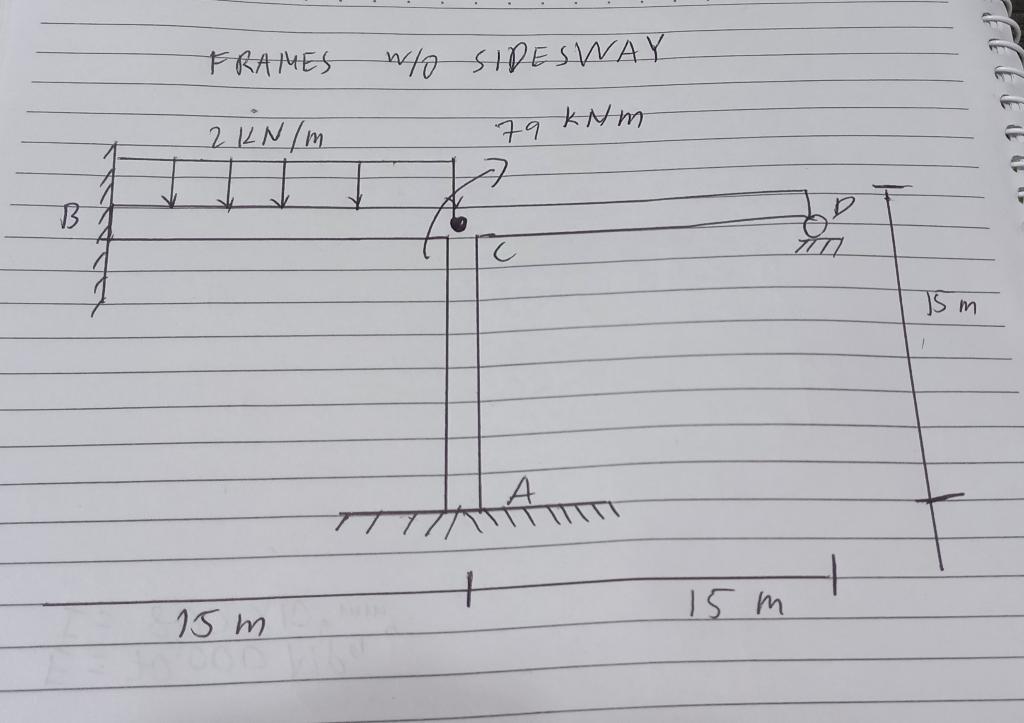 FRAMES W/O SIDESWAY
2 KN/m
79 KNm
B
C
D
15 m
A
15 m
15 m